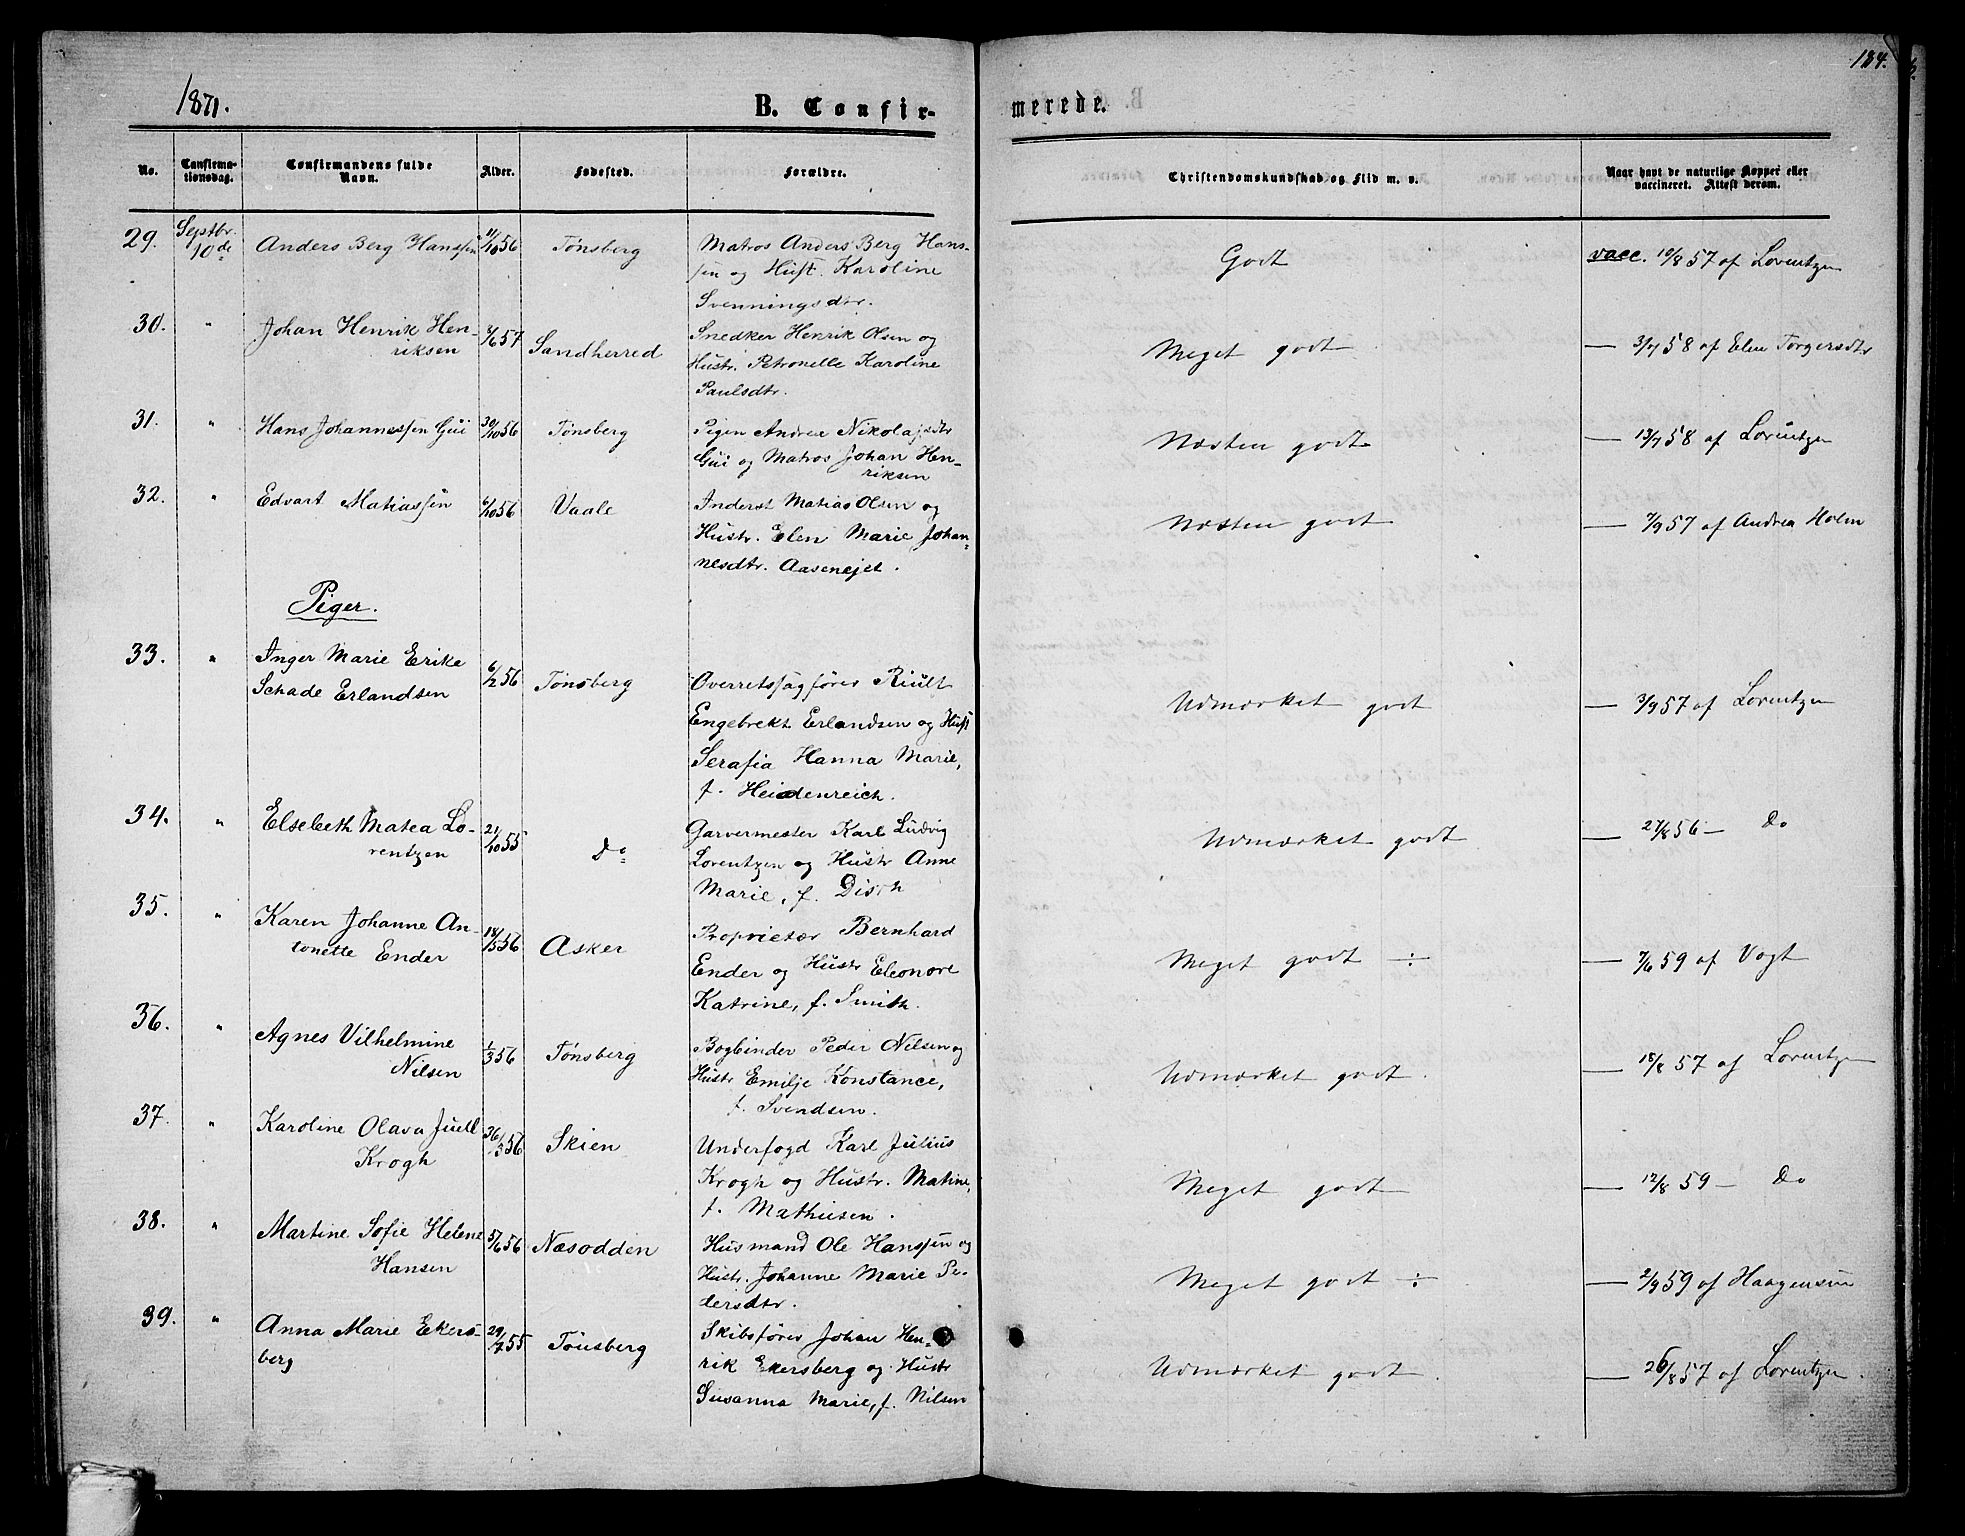 1871.
B. Confir-
merede.
184.
No.
Confirma-
tionsdag.
Confirmandens fulde
Navn.
Alder.
Fødested.
Forældre.
Christendomskundskab og Flid m. v.
Naar havt de naturlige Kopper eller
vaccineret. Attest derom.
29. Septbr. 10de Anders Berg Hanssen 11/10 56 Tønsberg Matros Anders Berg Hans- Godt vacc. 10/8 57 af Lorentzen
sen og Hust. Karoline
Svenningsdtr.
30. " Johan Henrik Hen- /6 57 Sandherred Snedker Henrik Olsen og Meget godt — 3/7 58 af Elen Torgersdtr
riksen Hustr. Petronelle Karoline
Paulsdtr.
31. " Hans Johannessen Gui 30/10 56 Tønsberg Pigen Andrea Nikolajsdtr Næsten godt — 13/7 58 af Lorentzen
Gui og Matros Johan Hen-
riksen
32. " Edvart Matiassen 6/10 56 Vaale Anderst Matias Olsen og Næsten godt — 7/9 57 af Andrea Holm
Hustr. Elen Marie Johan-
nesdtr. Aasenejet.
Piger.
33. " Inger Marie Erike 6/2 56 Tønsberg Overretssagfører Riult Udmærket godt — 3/9 57 af Lorentzen
Schade Erlandsen Engebrekt Erlandsen og Hust
Serafia Hanna Marie,
f. Heidenreich.
34. " Elsebeth Matea Lo- 21/10 55 Do Garvermester Karl Ludvig Udmærket godt — 27/8 56 — Do
rentzen Lorentzen og Hustr Anne
Marie, f. Disch
35. " Karen Johanne An- 18/5 56 Asker Proprietær Bernhard Meget godt ÷ — 7/6 59 af Vogt
tonette Ender Ender og Hustr Eleonore
Katrine, f. Smith.
36. " Agnes Vilhelmine 1/3 56 Tønsberg Bogbinder Peder Nilsen og Udmærket godt. — 18/8 57 af Lorentzen
Nilsen Hustr Emilje Konstance,
f. Svendsen.
37. " Karoline Olava Juell /3 56 Skien Underfogd Karl Julius Meget godt — 12/8 59 — Do
Krogh Krogh og Hustr. Matine,
f. Mathiesen.
38. " Martine Sofie Helene 5/6 56 Næsodden Husmand Ole Hanssen og Meget godt ÷ — 2/9 59 af Haagensen
Hansen Hustr. Johanne Marie Pe-
dersdtr.
39. " Anna Marie Ekers- 29/7 55 Tønsberg Skibsfører Johan Hen- Udmærket godt. — 26/8 57 af Lorentzen.
berg rik Ekersberg og Hustr
Susanna Marie, f. Nilsen